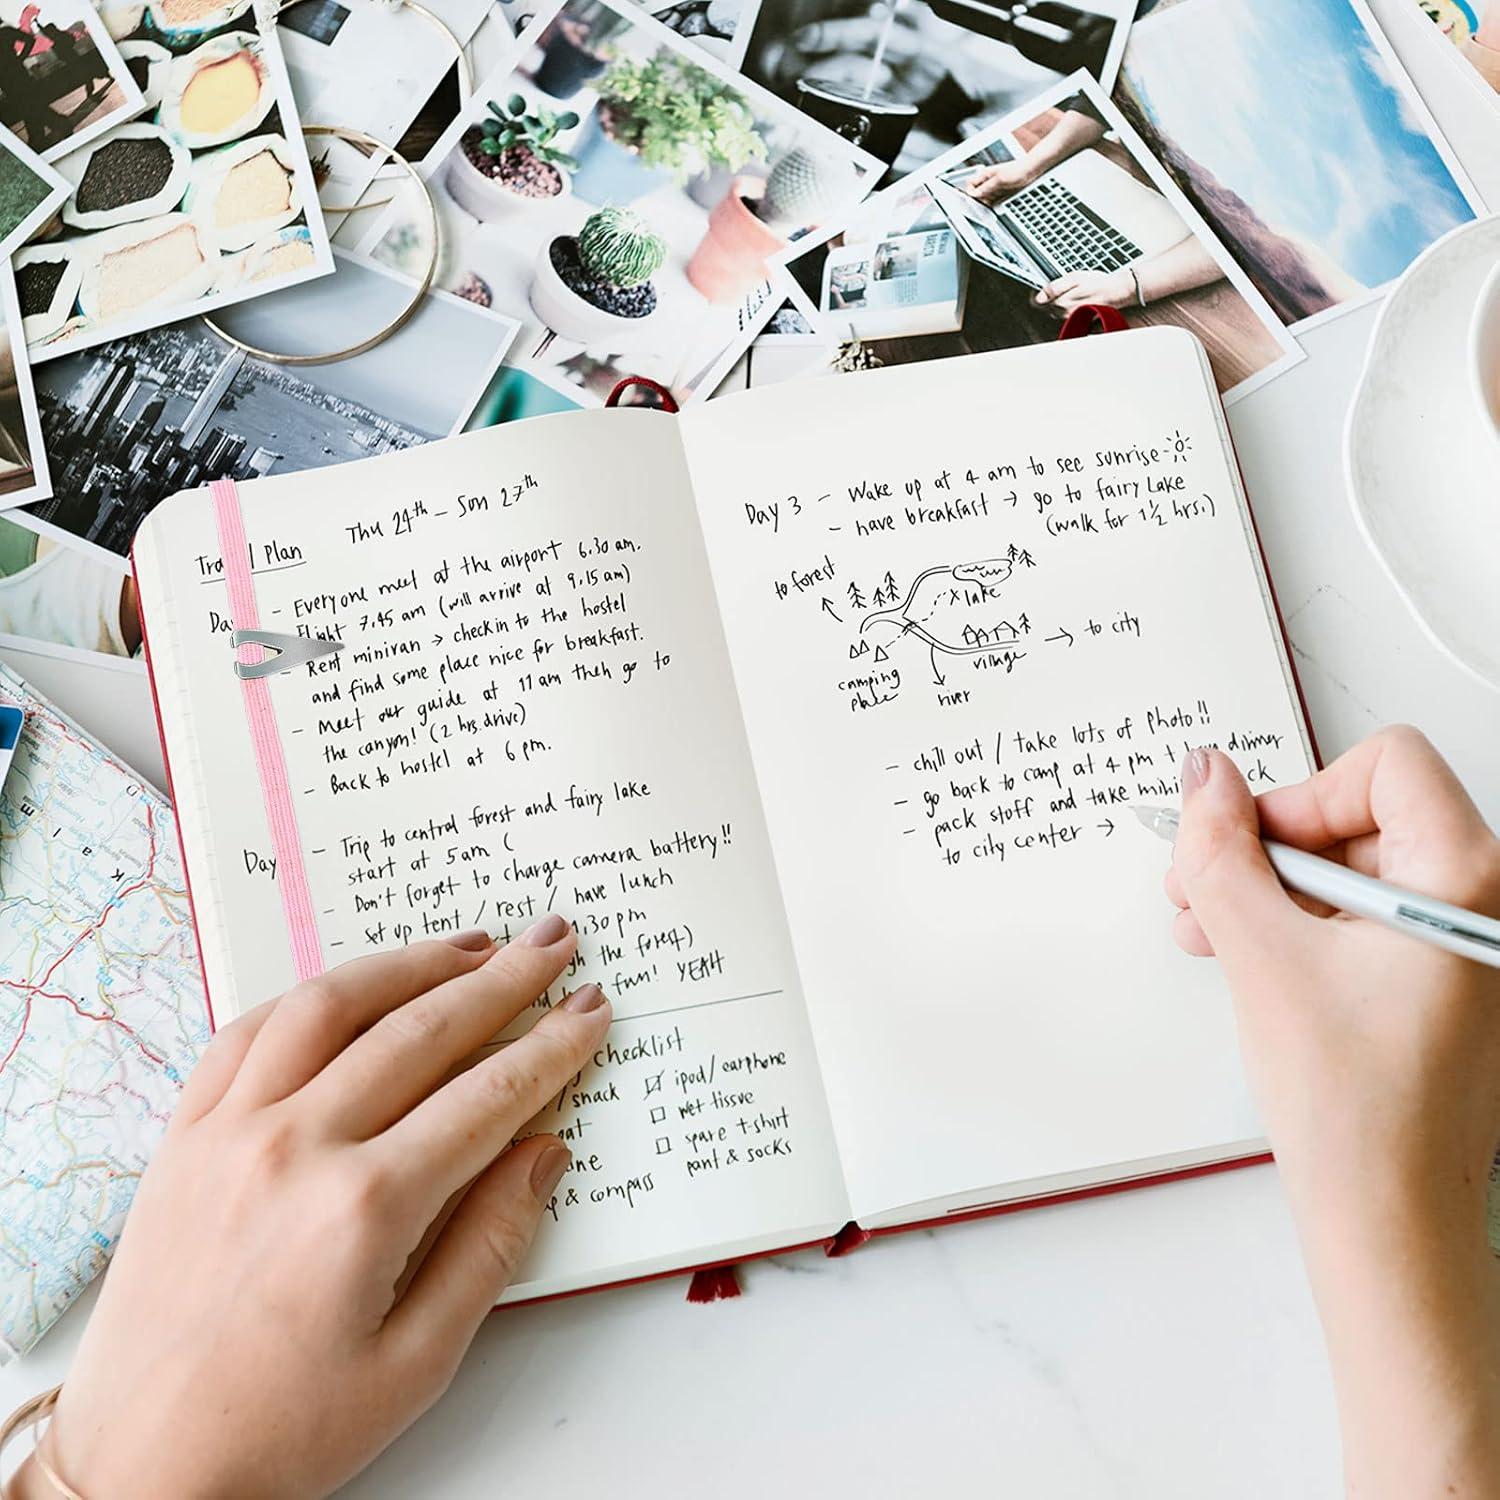 Thu 24th - Sun 27th
Plan
- Everyone meet at the airport 6.30 am.
Flight 7.45 am (will arrive at 9.15 am)
- Rent minivan → check in to the hostel
and find some place nice for breakfast.
- Meet our guide at 11 am then go to
the canyon! (2 hrs. drive)
- Back to hostel at 6 pm.
Day
- Trip to central forest and fairy lake
start at 5 am (
- Don't forget to charge camera battery!!
- set up tent / rest / have lunch
1.30 pm
the forest)
fun! YEAH
checklist
/ snack
ipod / earphone
wet tissue
spare t-shirt
pant & socks
& compass
Day 3 - Wake up at 4 am to see sunrise
- have breakfast → go to fairy Lake
(walk for 1 1/2 hrs.)
to forest
x lake
→ to city
village
camping
place
river
- chill out / take lots of photo!!
- go back to camp at 4 pm + dinner
- pack stuff and take
to city center →